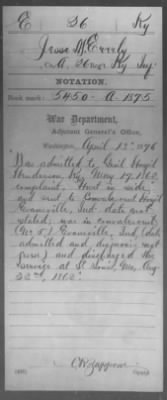 E 26 Ky
Jesse M. Everly
Co. A, 26 Reg't Ky Inf.
NOTATION.
Book mark: 5450-A-1895
War Department,
Adjutant General's Office,
Washington, April 13", 1896
Was admitted to Gen'l Hosp'l
Henderson, Ky, May 17, 1862,
complaint, Hurt in side,
and sent to Convalescent Hosp'l
Evansville, Ind. date not
stated, was in convalescent
(No. 5) Evansville, Ind, (date
admitted and diagnosis not
given) and discharged the
service at St Louis, Mo, Aug
22nd 1862.
Copyist.